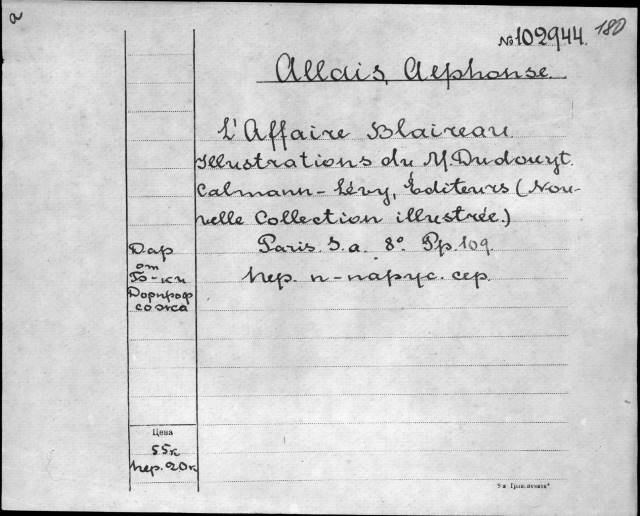 a
№102944. 180
Allais, Alphonse.
L'Affaire Blaireau
Illustrations du M. Dudouyt.
Calmann-Lévy, Éditeurs (Nou-
velle Collection illustrée.)
Paris. S.a. 8º. Pp. 109.
пер. п-парус. сер.
Дар
от
Б-ки
Дорпроф
сожа
Цена
55к
пер. 20к